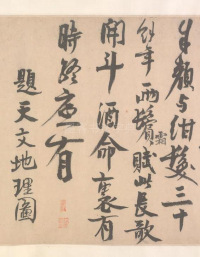 朱顏与紺髮三十
餘年兩鬢霜賦此長歌
開斗酒命裏有
時終有
題天文地理圖